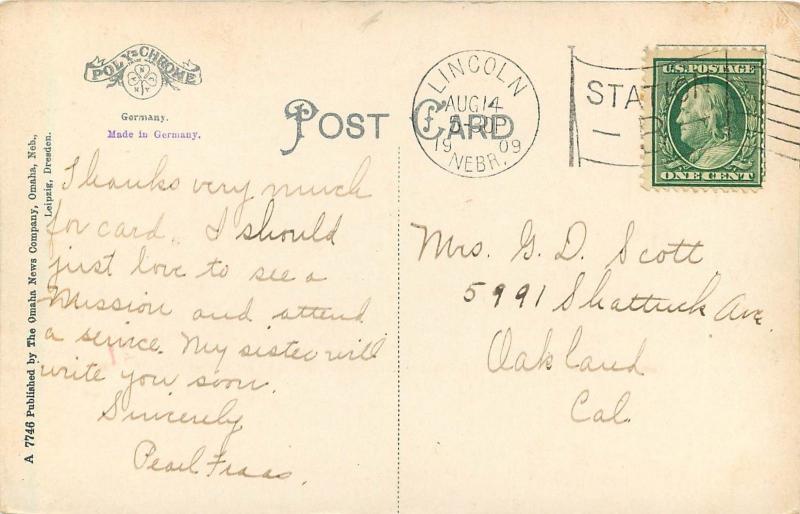 POLY-CHROME
Germany.
Made in Germany.
POST CARD
LINCOLN
AUG 14
19 09
NEBR.
U.S. POSTAGE
ONE CENT
A 7746 Published by The Omaha News Company, Omaha, Neb.,
Leipzig, Dresden.
Thanks very much
for card. I should
just love to see a
Mission and attend
a service. My sister will
write you soon.
Sincerely
Pearl Fraas.
Mrs. G. D. Scott
5991 Shattuck Ave.
Oakland
Cal.